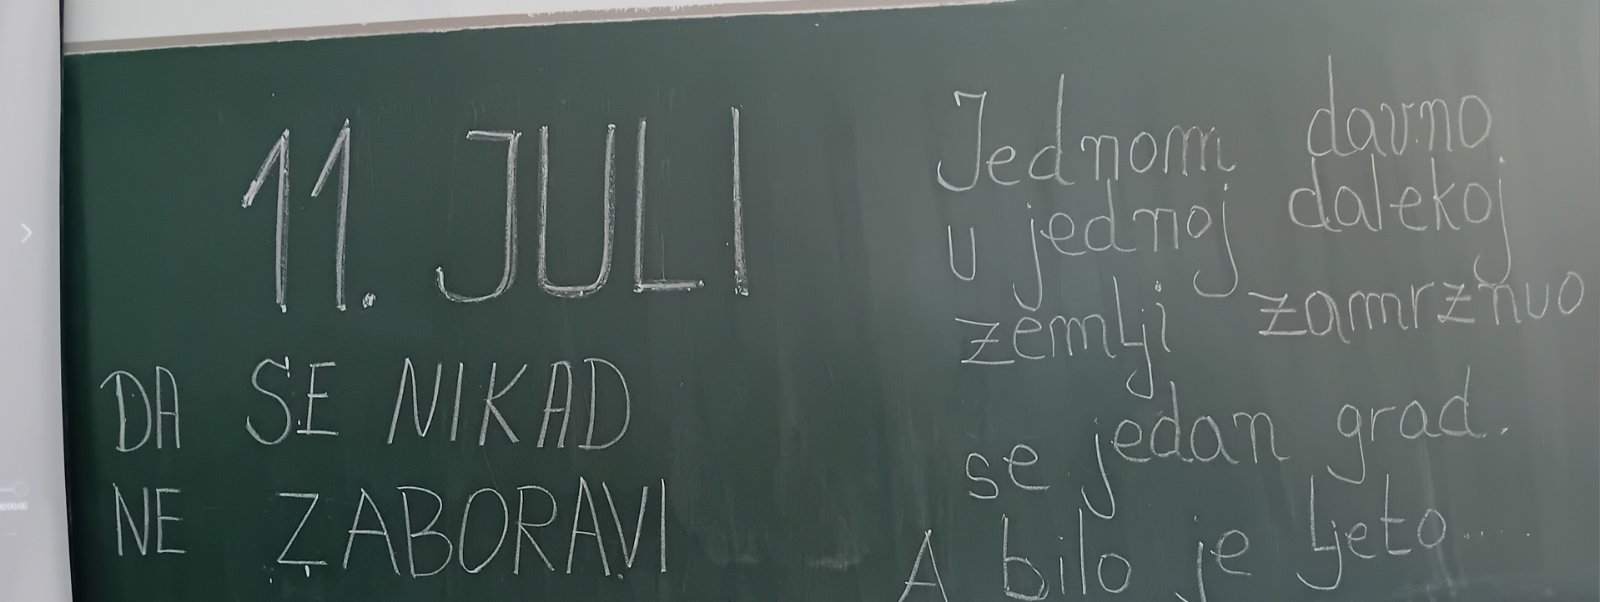 11. JULI
DA SE NIKAD
NE ZABORAVI
Jednom davno
u jednoj dalekoj
zemlji zamrznuo
se jedan grad.
A bilo je ljeto.....